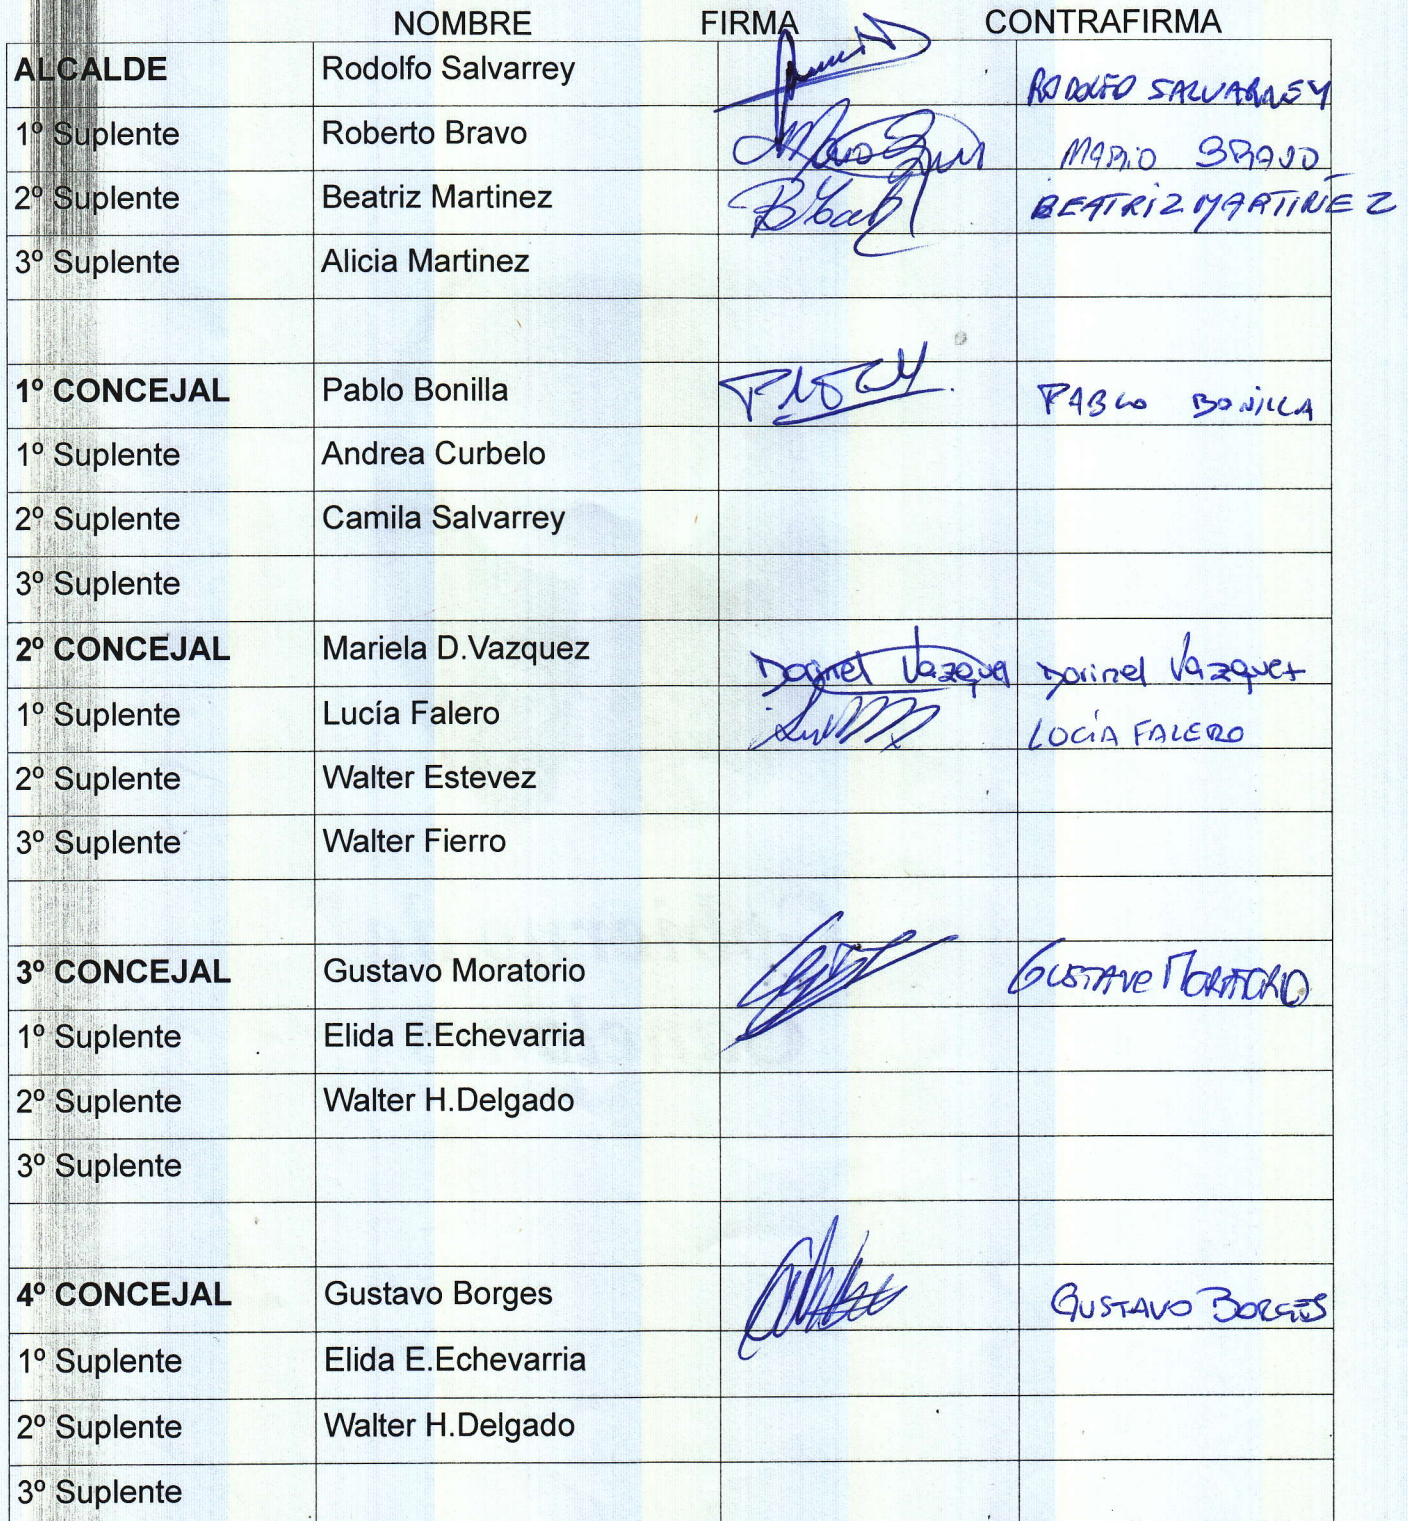 NOMBRE FIRMA CONTRAFIRMA
ALCALDE Rodolfo Salvarrey RODOLFO SALVARREY
1º Suplente Roberto Bravo MARIO BRAVO
2º Suplente Beatriz Martinez BEATRIZ MARTINEZ
3º Suplente Alicia Martinez
1º CONCEJAL Pablo Bonilla PABLO BONILLA
1º Suplente Andrea Curbelo
2º Suplente Camila Salvarrey
3º Suplente
2º CONCEJAL Mariela D.Vazquez Vazquez Dorinel Vazquez
1º Suplente Lucía Falero LUCÍA FALERO
2º Suplente Walter Estevez
3º Suplente Walter Fierro
3º CONCEJAL Gustavo Moratorio GUSTAVO MORATORIO
1º Suplente Elida E.Echevarria
2º Suplente Walter H.Delgado
3º Suplente
4º CONCEJAL Gustavo Borges GUSTAVO BORGES
1º Suplente Elida E.Echevarria
2º Suplente Walter H.Delgado
3º Suplente